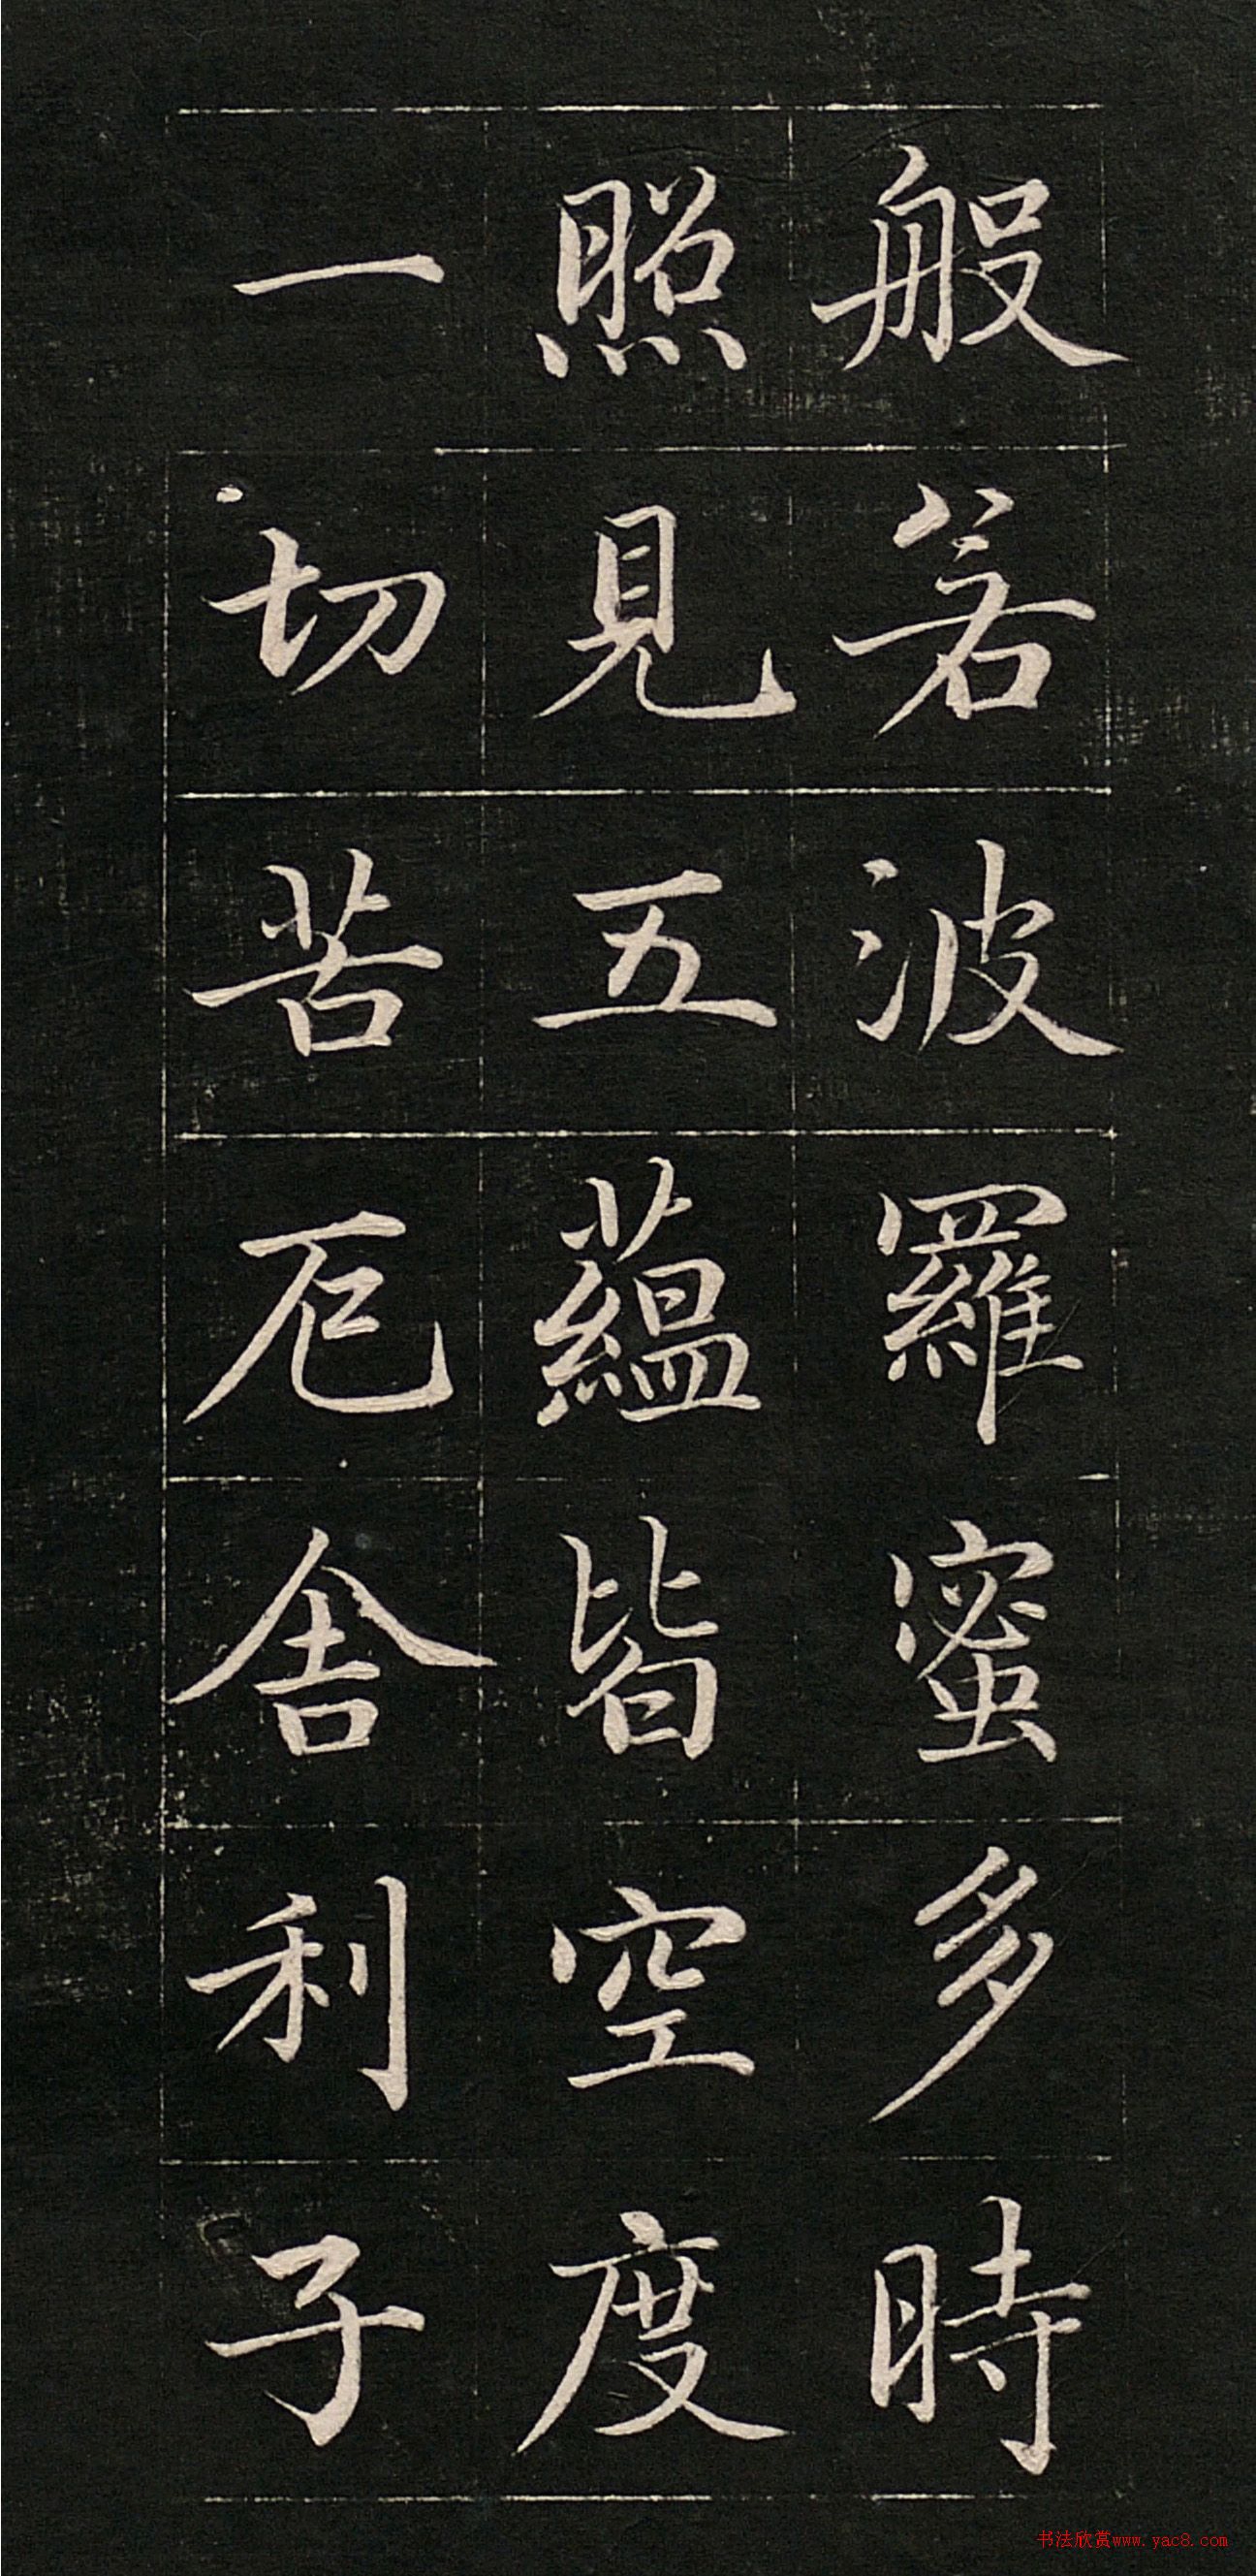 般若波羅蜜多時
照見五蘊皆空度
一切苦厄舍利子
书法欣赏www.yac8.com